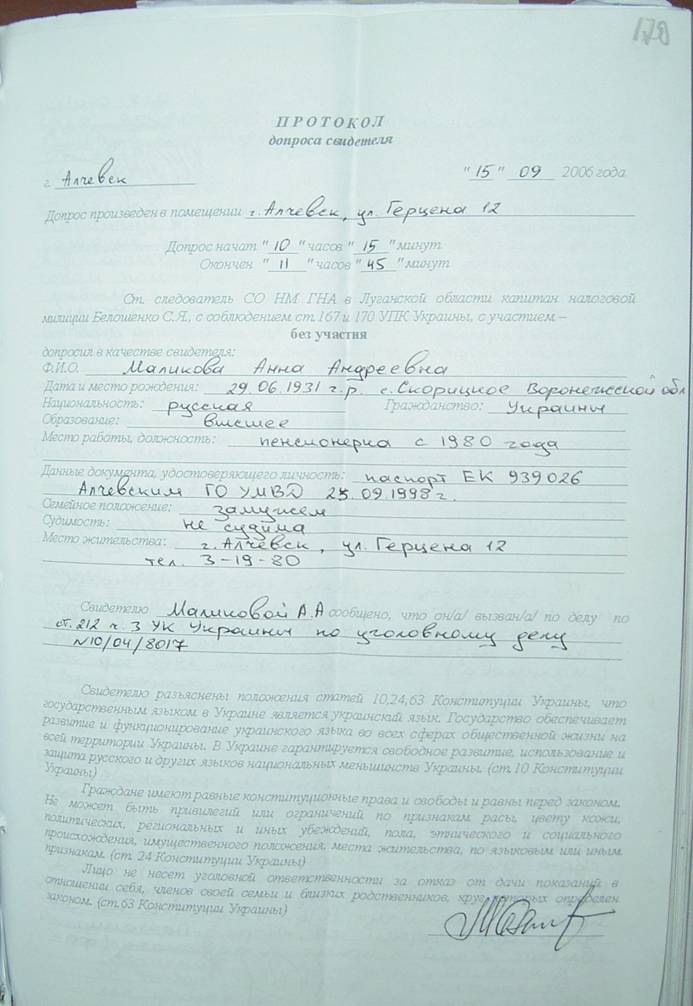 178
ПРОТОКОЛ
допроса свидетеля
г. Алчевск "15" 09 2006 года
Допрос произведен в помещении г. Алчевск, ул. Герцена 12
Допрос начат "10" часов "15" минут
Окончен "11" часов "45" минут
Ст. следователь СО НМ ГНА в Луганской области капитан налоговой
милиции Белошенко С.Я., с соблюдением ст.167 и 170 УПК Украины, с участием –
без участия
допросил в качестве свидетеля:
Ф.И.О. Маликова Анна Андреевна
Дата и место рождения: 29.06.1931 г.р. с. Скорицкое Воронежской обл
Национальность: русская Гражданство: Украины
Образование: высшее
Место работы, должность: пенсионерка с 1980 года
Данные документа, удостоверяющего личность: паспорт ЕК 939026
Алчевским ГО УМВД 25.09.1998 г.
Семейное положение: замужем
Судимость: не судима
Место жительства: г. Алчевск, ул. Герцена 12
тел. 3-19-80
Свидетелю Маликовой А.А сообщено, что он/а/ вызван/а/ по делу по
ст. 212 ч. 3 УК Украины по уголовному делу
N10/04/8017
Свидетелю разъяснены положения статей 10,24,63 Конституции Украины, что
государственным языком в Украине является украинский язык. Государство обеспечивает
развитие и функционирование украинского языка во всех сферах общественной жизни на
всей территории Украины. В Украине гарантируется свободное развитие, использование и
защита русского и других языков национальных меньшинств Украины. (ст.10 Конституции
Украины)
Граждане имеют равные конституционные права и свободы и равны перед законом.
Не может быть привилегий или ограничений по признакам расы, цвету кожи,
политических, религиозных и иных убеждений, пола, этнического и социального
происхождения, имущественного положения, места жительства, по языковым или иным
признакам. (ст. 24 Конституции Украины)
Лицо не несет уголовной ответственности за отказ от дачи показаний в
отношении себя, членов своей семьи и близких родственников, круг которых определен
законом. (ст.63 Конституции Украины)